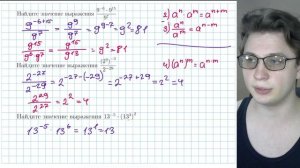 Найдите значение выражения
9^{-6+15} / 9^7 = 9^9 / 9^7 = 9^{9-7} = 9^2 = 81
9^{15} / 9^6 9^7 = 9^{15} / 9^{13} = 9^2 = 81
Найдите значение выражения
2^{-27} / 2^{-29} = 2^{-27-(-29)} = 2^{-27+29} = 2^2 = 4
2^{29} / 2^{27} = 2^2 = 4
Найдите значение выражения 13^{-5} · (13^2)^3
13^{-5} · 13^6 = 13^1 = 13
2) a^n · a^m = a^{n+m}
3) a^n / a^m = a^{n-m}
4) (a^n)^m = a^{n·m}